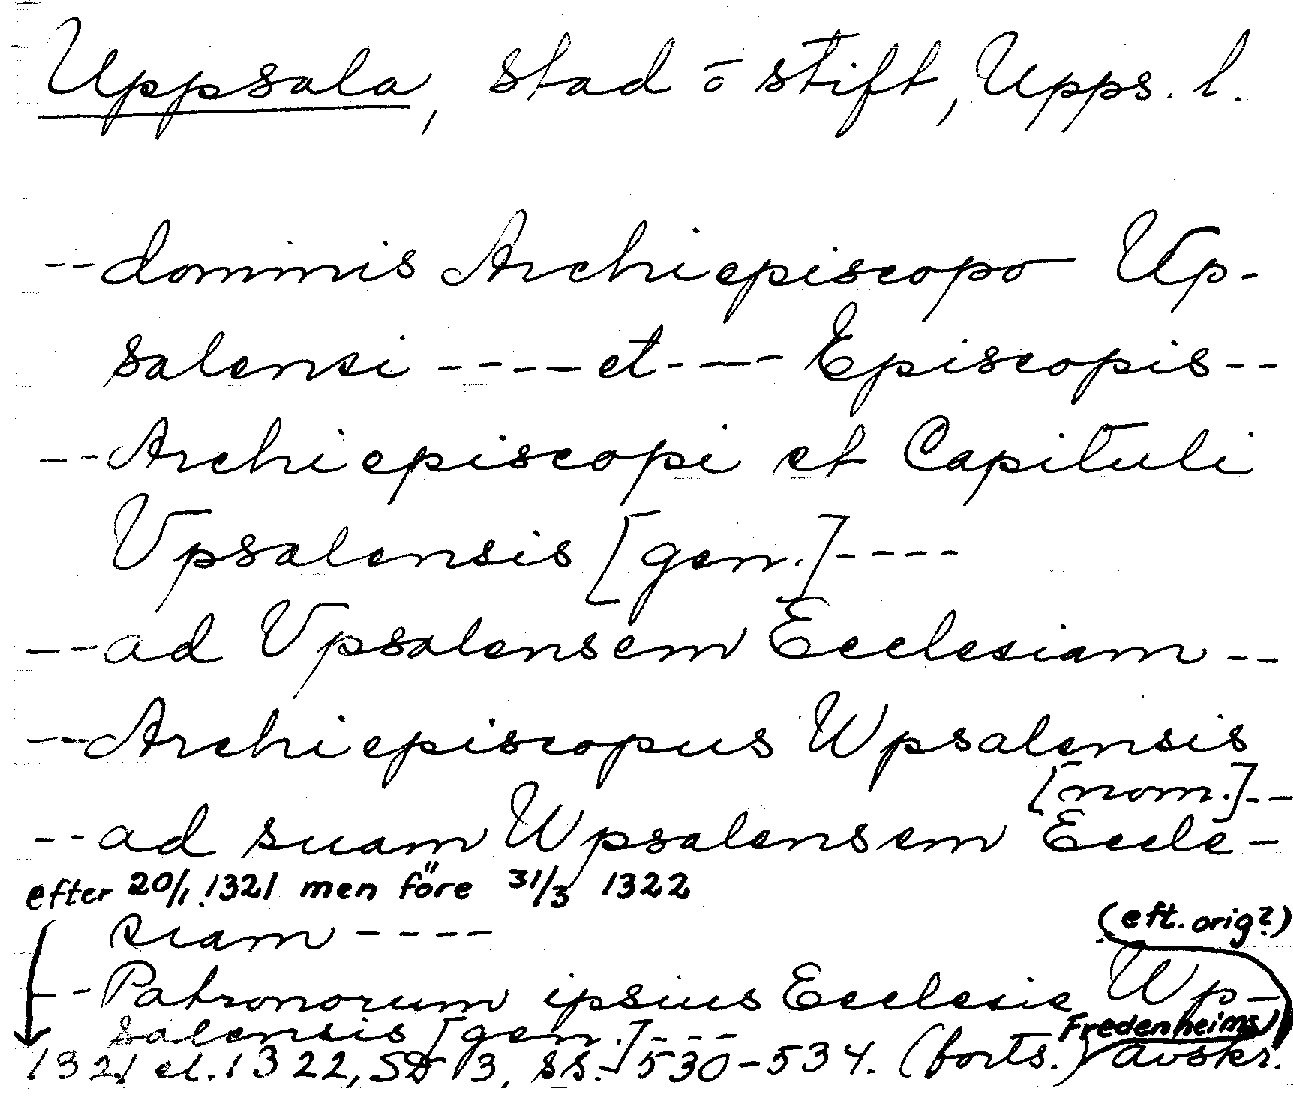 Uppsala, stad o stift, Upps. l.
-- dominis Archiepiscopo Up-
salensi ---- et --- Episcopis --
-- Archiepiscopi et Capituli
Vpsalensis [gen.] ----
-- ad Vpsalensem Ecclesiam --
-- Archiepiscopus Wpsalensis
[nom.] --
-- ad suam Wpsalensem Eccle-
efter 20/1 1321 men före 31/3 1322
siam ----
(eft. orig?)
-- Patronorum ipsius Ecclesie Wp-
salensis [gen.] ----
Fredenheims
1321 el. 1322, SD 3, ss. 530-534. (forts.) avskr.